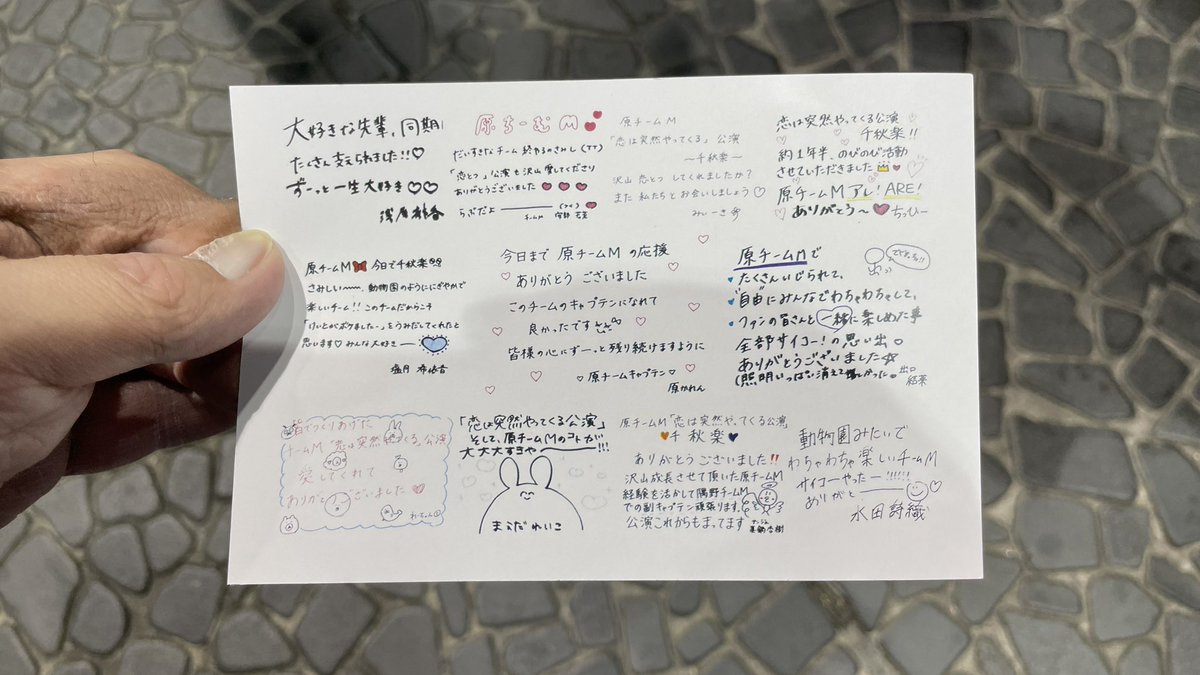 大好きな先輩、同期!
たくさん支えられました!!♡
ずーっと一生大好き♡♡
原ちーむM
だいすきなチーム 終わるのさみし(TT)
「恋とつ」公演も沢山愛してくださり
ありがとうございました
らぶだよ
原チームM
「恋は突然やってくる」公演
〜千秋楽〜
沢山 恋とつ してくれましたか?
また 私たちと お会いしましょう♡
みぃーき
恋は突然やってくる公演
千秋楽!!
約1年半、のびのび活動
させていただきました
原チームM アレ!ARE!
ありがとう〜 ちっひー
原チームM 今日で千秋楽
さみしい〜 動物園のようににぎやかで
楽しいチーム!! このチームだからこそ
「けいとがボケました〜」をうみだしてくれたと
思います♡ みんな大好きー
塩月 希依音
今日まで 原チームM の応援
ありがとう ございました
このチームのキャプテンになれて
良かったです
皆様の心にずーっと残り続けますように
♡原チームキャプテン♡
原かれん
原チームMで
・たくさんいじられて、
・"自由"にみんなでわちゃわちゃして、
・ファンの皆さんと一緒に楽しめた事
全部サイコー!の思い出。
ありがとうございました☆
(照明いっぱい消えて嬉しかった)。出口
結菜
皆でつくりあげた
チームM「恋は突然やってくる」公演
愛してくれて
ありがとうございました♡
「恋は突然やってくる公演」
そして、原チームMのコトが
大大大すきやーー!!!
まうだ れいこ
原チームM「恋は突然やってくる公演
千秋楽
ありがとうございました!!
沢山成長させて頂いた原チームM
経験を活かして隅野チームM
での副キャプテン頑張ります
公演これからもまってます
動物園みたいで
わちゃわちゃ楽しいチームM
サイコーやったー!!!!!!
ありがとーー!!
水田詩織